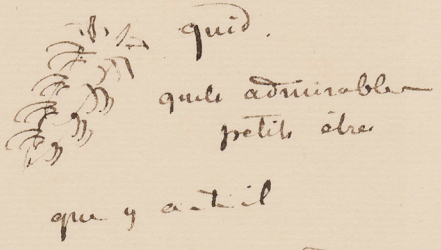 quid.
quels admirables
petits êtres
que y a-t-il